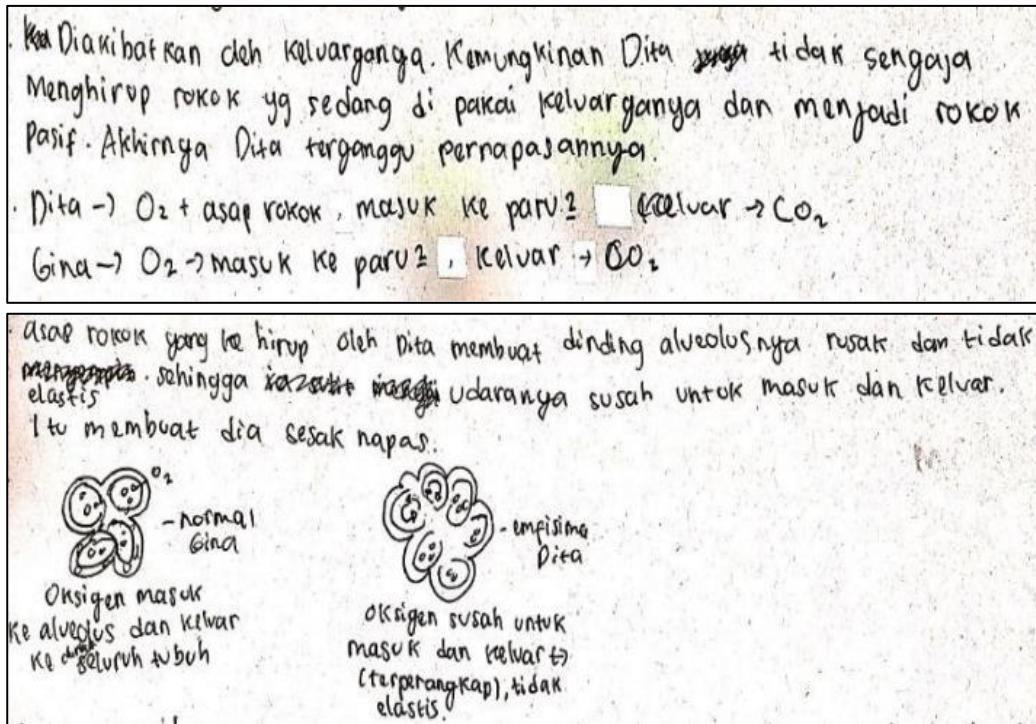 Diakibatkan oleh keluarganya. Kemungkinan Dita tidak sengaja
Menghirup rokok yg sedang di pakai keluarganya dan menjadi rokok
Pasif. Akhirnya Dita terganggu pernapasannya.
. Dita → O₂ + asap rokok, masuk ke paru² keluar → CO₂
Gina → O₂ → masuk ke paru², keluar → CO₂
asap rokok yang ke hirup oleh Dita membuat dinding alveolusnya rusak dan tidak
elastis. sehingga udaranya susah untuk masuk dan keluar.
Itu membuat dia sesak napas.
O₂
- normal
Gina
Oksigen masuk
ke alveolus dan keluar
ke seluruh tubuh
- empisima
Dita
oksigen susah untuk
masuk dan keluar
(terperangkap), tidak
elastis.